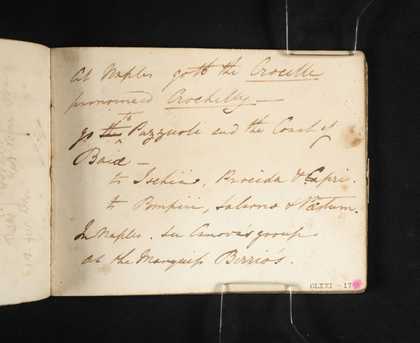 At Naples go to the Crocelle
pronounced Crochelly —
go to Puzzuoli and the Coast of
Baiae —
to Ischia, Procida & Capri.
to Pompeii, Salerno & Pæstum.
In Naples. see Canova's group
at the Marquiss Berrios.
CLXXI - 17